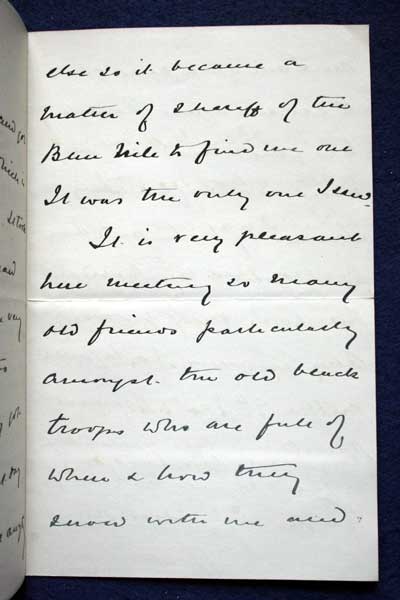 else so it became a
matter of Sheriff of the
Blue Nile to find me one
It was the only one I saw.
It is very pleasant
here meeting so many
old friends particularly
amongst the old black
troops who are full of
when & how they
with me and